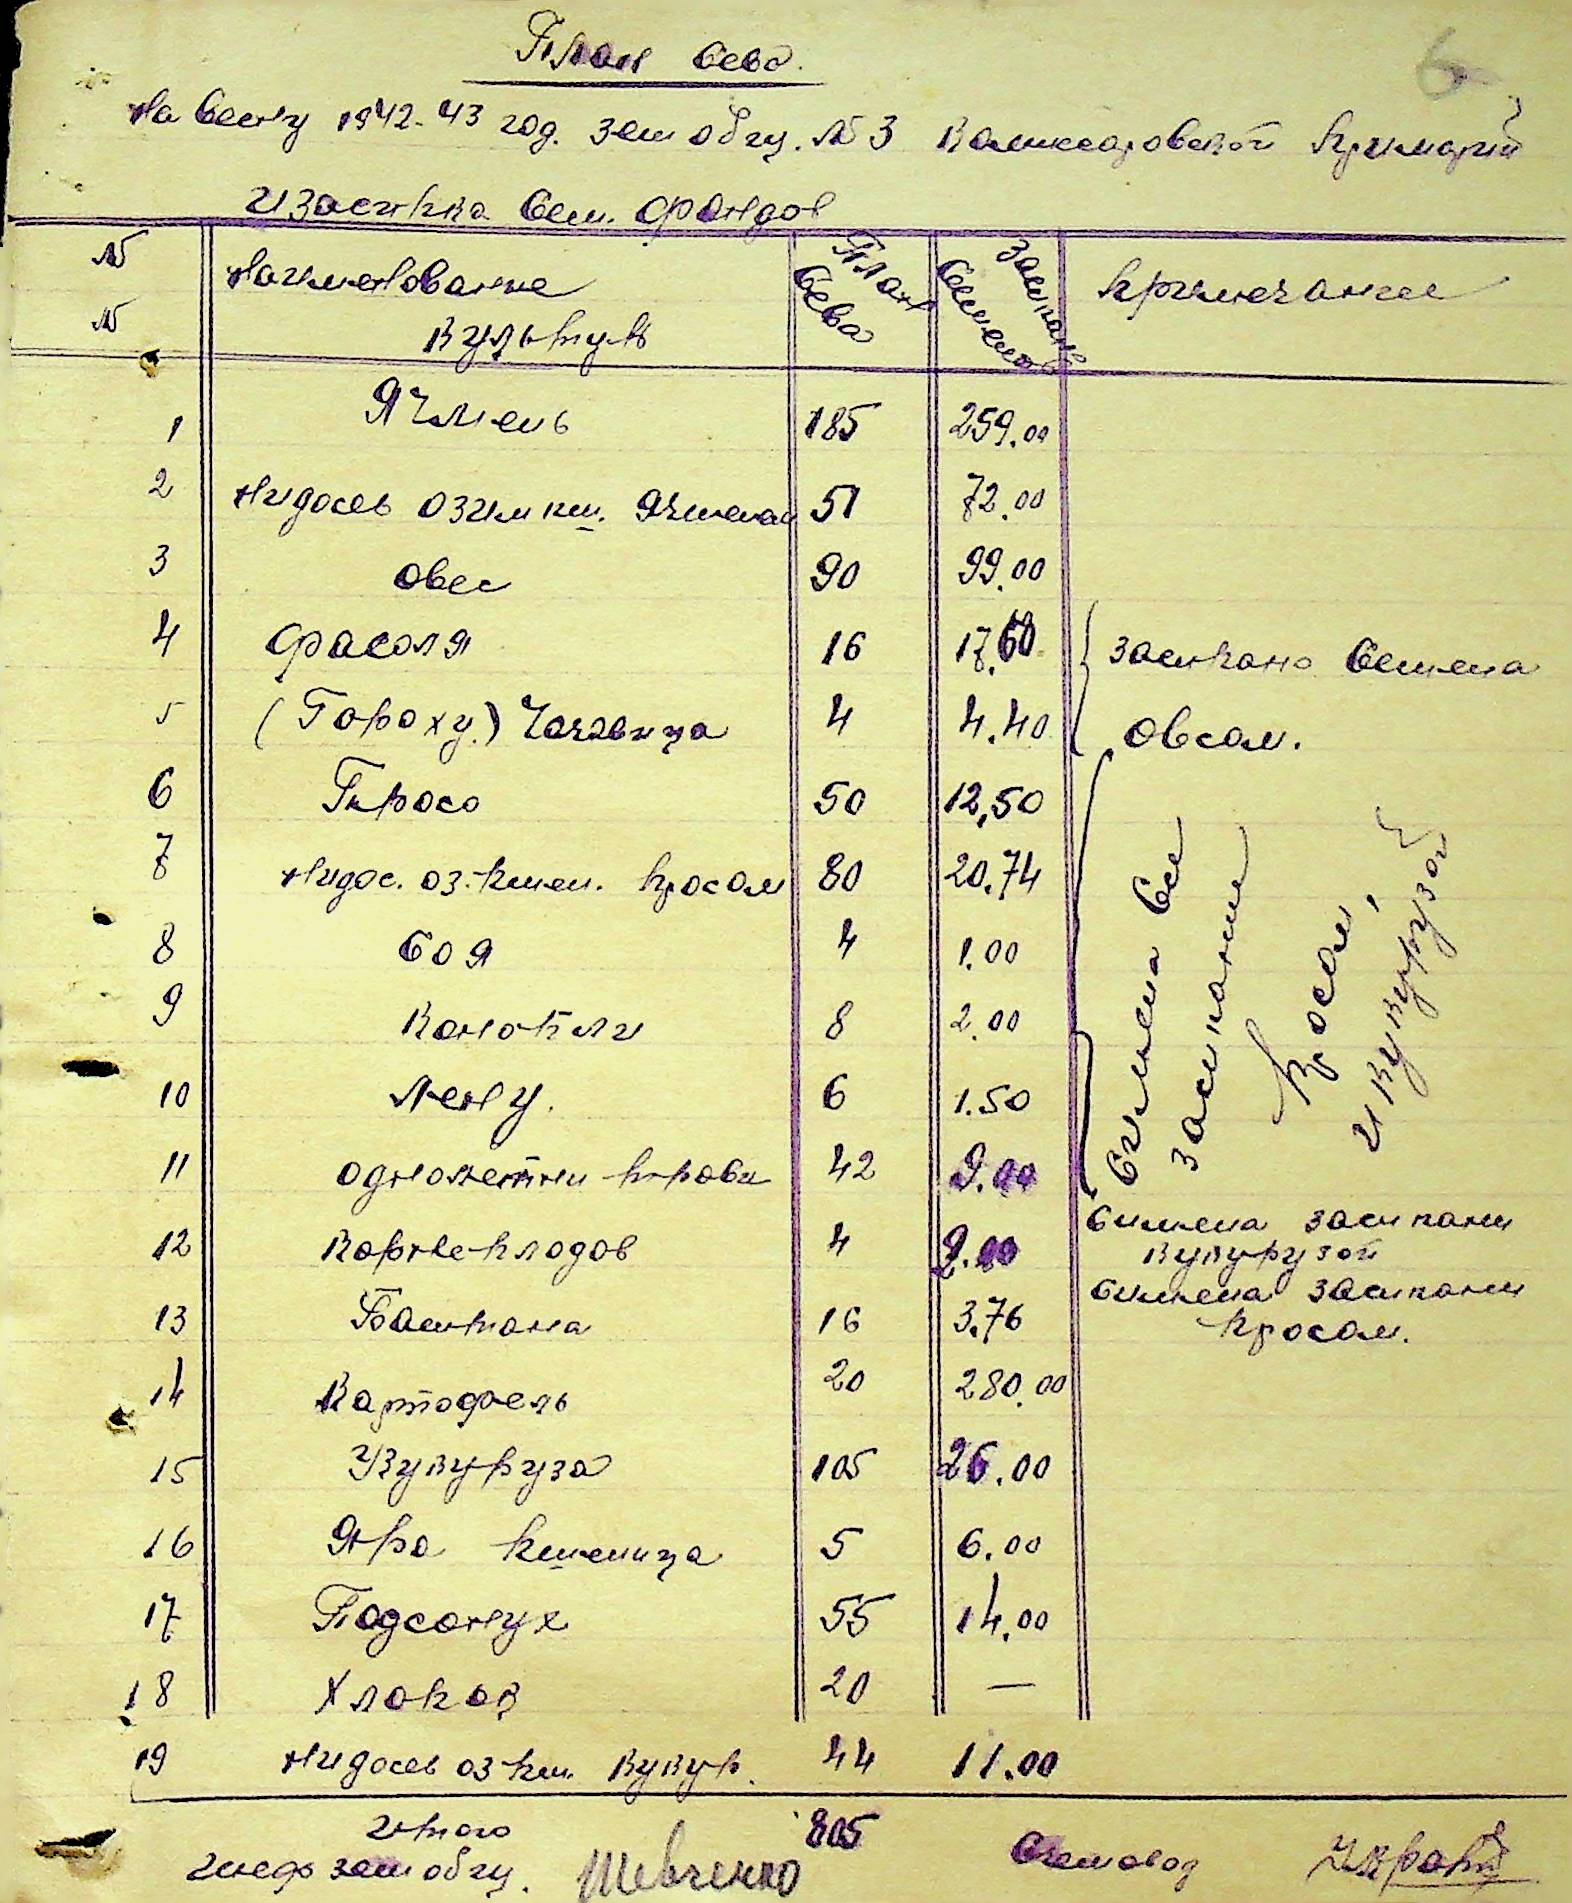 План сева.
6
на весну 1942-43 год. Зем общ. № 3
и засипка сем. фондов
№ № Наименование культур План сева Засипано семенов Примечание
1 Ячмень 185 259.00
2 Нидосев озим пш. Ячменем 51 72.00
3 Овес 90 99.00
4 Фасоля 16 17.60 Засипано семена
5 (Гороху) Чачавица 4 4.40 овсом.
6 Просо 50 12,50
7 Нидос. оз. пшен. просом 80 20.74
8 Соя 4 1.00
9 Конопли 8 2.00
10 Лену. 6 1.50
11 Однолетни трови 42 9.00
Симена все засипани просом, и кукурузой
12 Корнеплодов 4 2.00 Симена засипани кукурузой
13 Баштана 16 3.76 Симена засипани просом.
14 Картофель 20 280.00
15 Кукуруза 105 26.00
16 Яра пшеница 5 6.00
17 Подсонух 55 14.00
18 Хлопок 20 —
19 Нидосев оз пш. кукур. 44 11.00
Итого 805
Шеф зем общ. Шевченко Счетовод